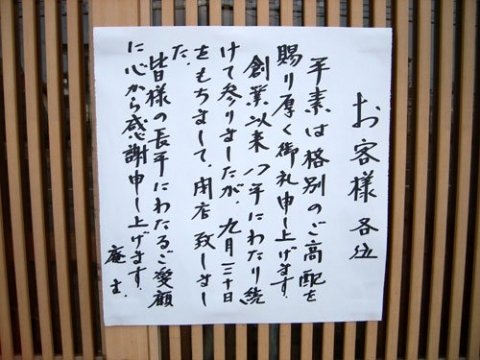 お客様 各位
平素は格別のご高配を
賜り厚く御礼申し上げます.
創業以来 八年にわたり続
けて参りましたが、九月三十日
をもちまして、閉店 致しまし
た.
皆様の長年にわたるご愛顧
に心から感謝申し上げます.
庵主.